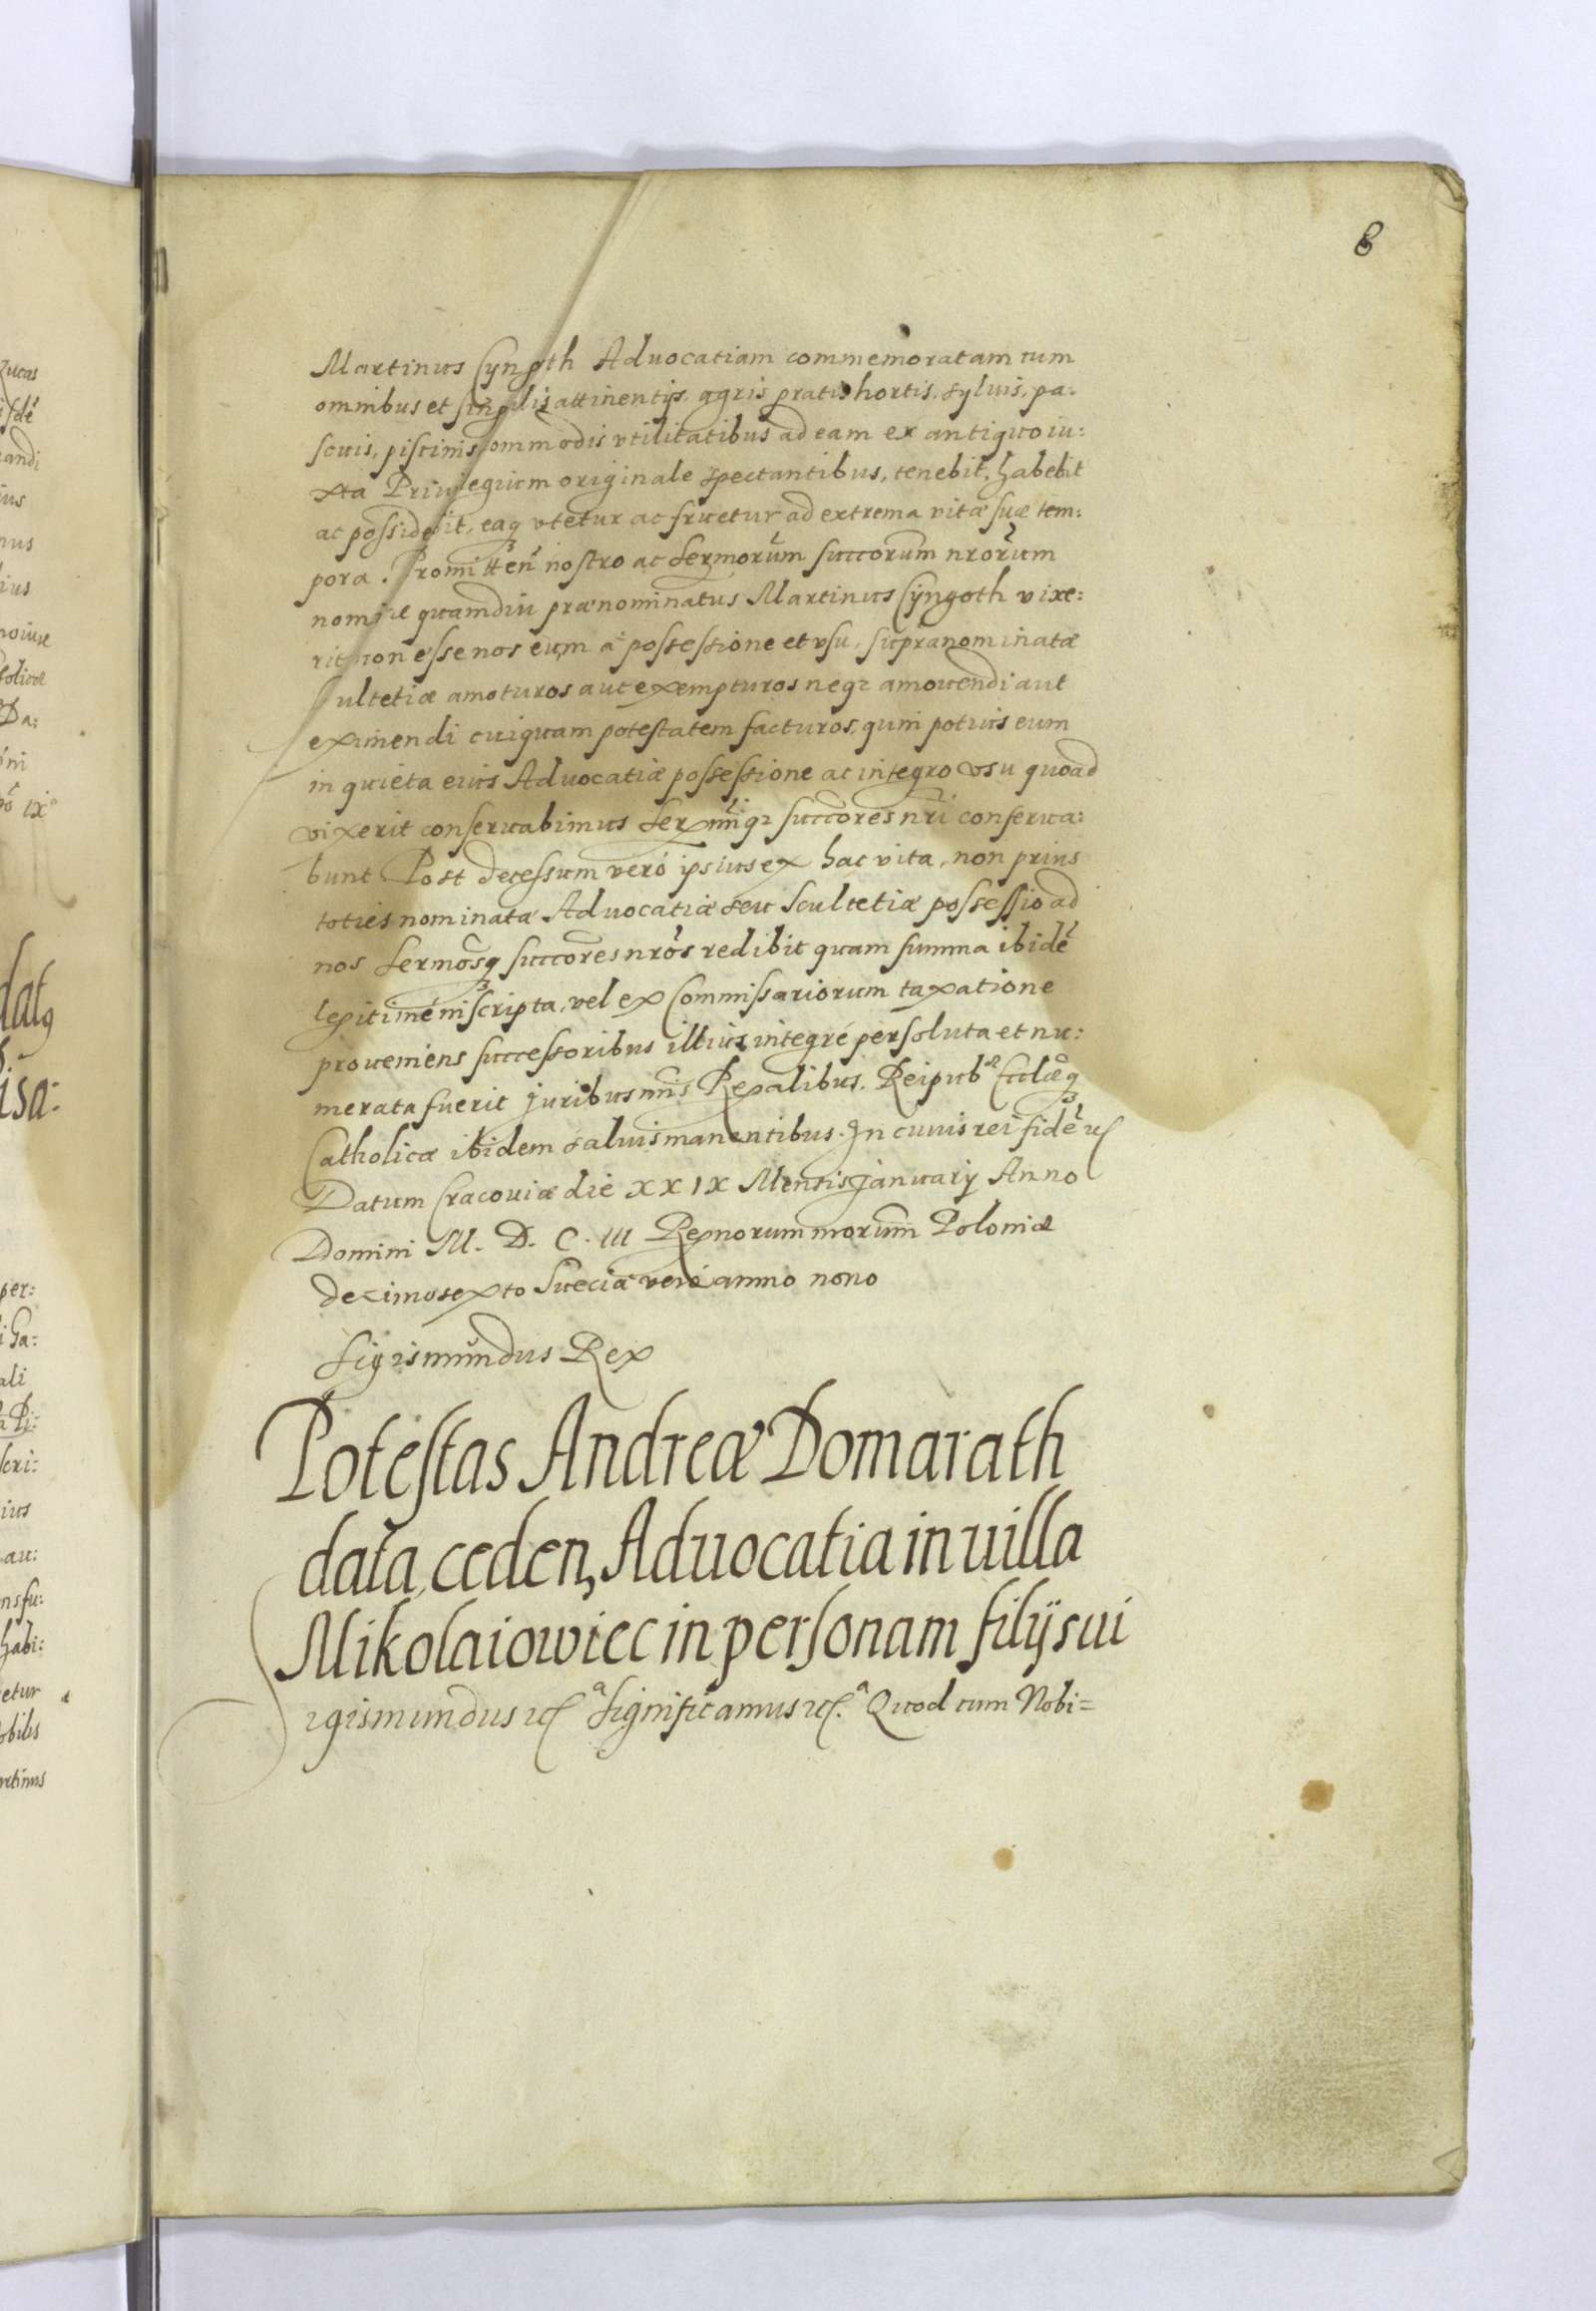 8
Martinus Cyngoth Aduocatiam commemoratam cum
omnibus et singulis attinentijs. agris pratis hortis. syluis, pa:
scuis, piscinis commodis vtilitatibus ad eam ex antiquo iu:
xta Priuilegium originale spectantibus, tenebit, habebit
ac possidebit, eaq3 vtetur ac fruetur ad extrema vitæ suæ tem:
pora. Promitten̄ nostro ac Sermorum̄ succorum̄ nrorum̄
nomine quamdiu prænominatus Martinus Cÿngoth vixe:
rit non esse nos eum à possessione et vsu, supranominatæ
Scultetiæ amoturos aut exempturos neq2 amouendi aut
eximendi cuiquam potestatem facturos, quin potius eum
in quieta eius Aduocatiæ possessione ac integro vsu quoad
vixerit conseruabimus Sermiq2 succores nrī conserua:
bunt Post decessum verò ipsius ex hac vita, non prius
toties nominatæ Aduocatiæ seu Scultetiæ possessio ad
nos Sermosq3 succores nros redibit quam summa ibidē
legitimè inscripta, vel ex Commissariorum taxatione
proueniens successoribus illius integrè persoluta et nu:
merata fuerit juribus nris Regalibus. Reipub Ecclæq3
Catholicæ ibidem saluis manentibus. In cuius rei fidē etc
Datum Cracouiæ die XXIX Mensis Januarij Anno
Domini M. D. C. III Regnorum nrorum̄ Poloniæ
decimosexto Sueciæ verò anno nono
Sigismundus Rex
Potestas Andreæ Domarath
data, ceden, Aduocatia in uilla
Mikolaiowiec in personam filÿ sui
igismundus etc Significamus etc. Quod cum Nobi=